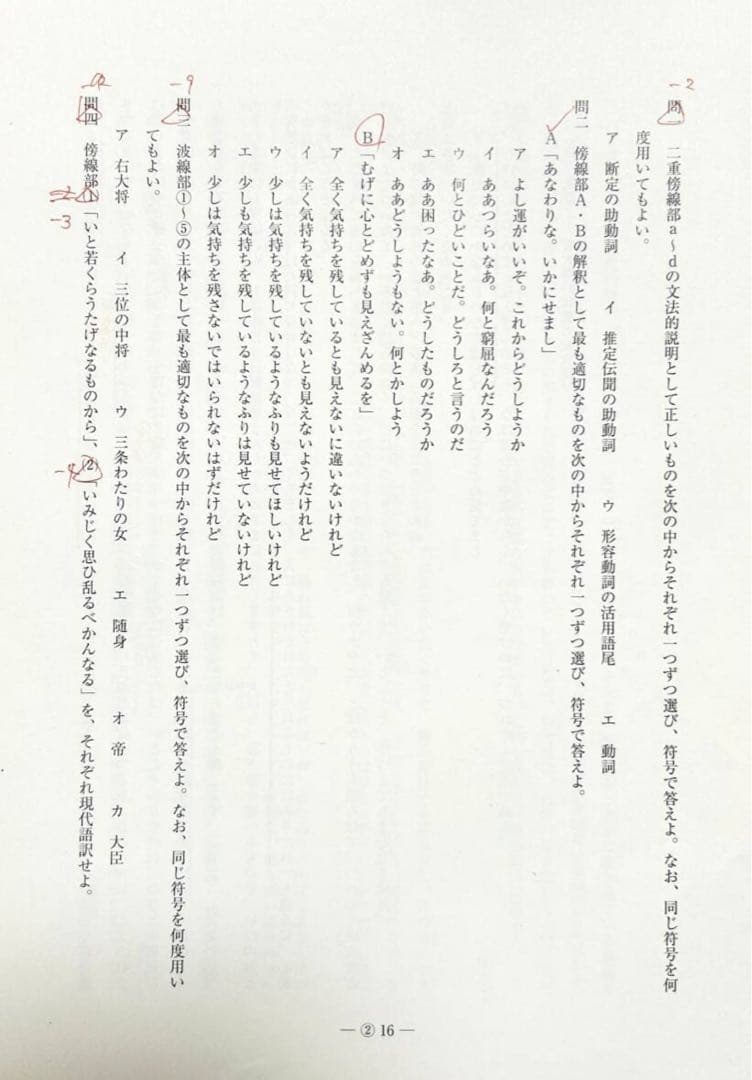 -2
問一 二重傍線部a～dの文法的説明として正しいものを次の中からそれぞれ一つずつ選び、符号で答えよ。なお、同じ符号を何
度用いてもよい。
ア 断定の助動詞 イ 推定伝聞の助動詞 ウ 形容動詞の活用語尾 エ 動詞
問二 傍線部A・Bの解釈として最も適切なものを次の中からそれぞれ一つずつ選び、符号で答えよ。
A「あなわりな。いかにせまし」
ア よし運がいいぞ。これからどうしようか
イ ああつらいなあ。何と窮屈なんだろう
ウ 何とひどいことだ。どうしろと言うのだ
エ ああ困ったなあ。どうしたものだろうか
オ ああどうしようもない。何とかしよう
B「むげに心とどめずも見えざんめるを」
ア 全く気持ちを残しているとも見えないに違いないけれど
イ 全く気持ちを残していないとも見えないようだけれど
ウ 少しは気持ちを残しているようなふりも見せてほしいけれど
エ 少しも気持ちを残しているようなふりは見せていないけれど
オ 少しは気持ちを残さないではいられないはずだけれど
-9
問三 波線部①～⑤の主体として最も適切なものを次の中からそれぞれ一つずつ選び、符号で答えよ。なお、同じ符号を何度用い
てもよい。
ア 右大将 イ 三位の中将 ウ 三条わたりの女 エ 随身 オ 帝 カ 大臣
問四 傍線部(1)「いと若くらうたげなるものから」、(2)「いみじく思ひ乱るべかんなる」を、それぞれ現代語訳せよ。
-3
-4
— ② 16 —